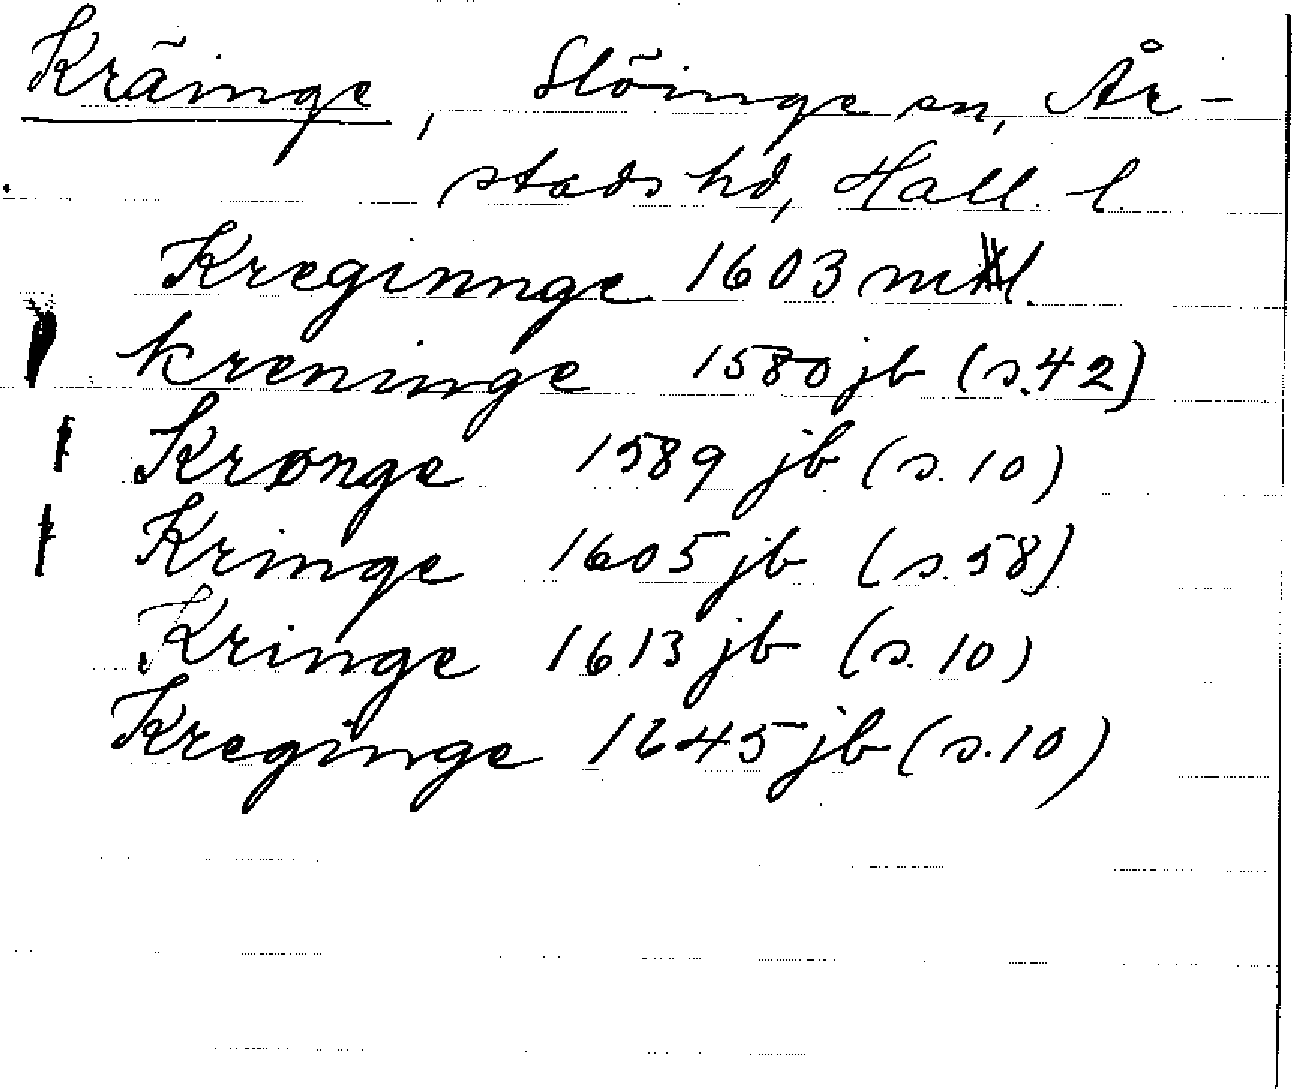 Kräinge, Slöinge sn, År-
stads hd, Hall. l.
Kreginnge 1603 mtl.
kreninge 1580 jb (s. 42)
Krønge 1589 jb (s. 10)
Kringe 1605 jb (s. 58)
Kringe 1613 jb (s. 10)
Kreginge 1645 jb (s. 10)